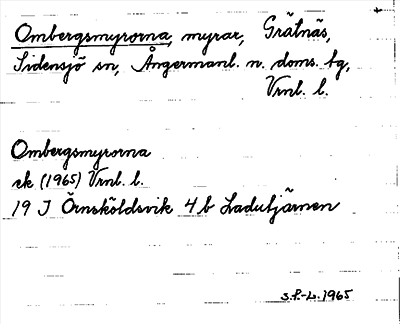 Ombergsmyrorna, myrar, Grätnäs,
Sidensjö sn, Ångermanl. n. doms. tg,
Vrnl. l.
Ombergsmyrorna
ek (1965) Vrnl. l.
19 J Örnsköldsvik 4 b Ladutjärnen
S.P.-L. 1965